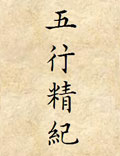 五行精紀